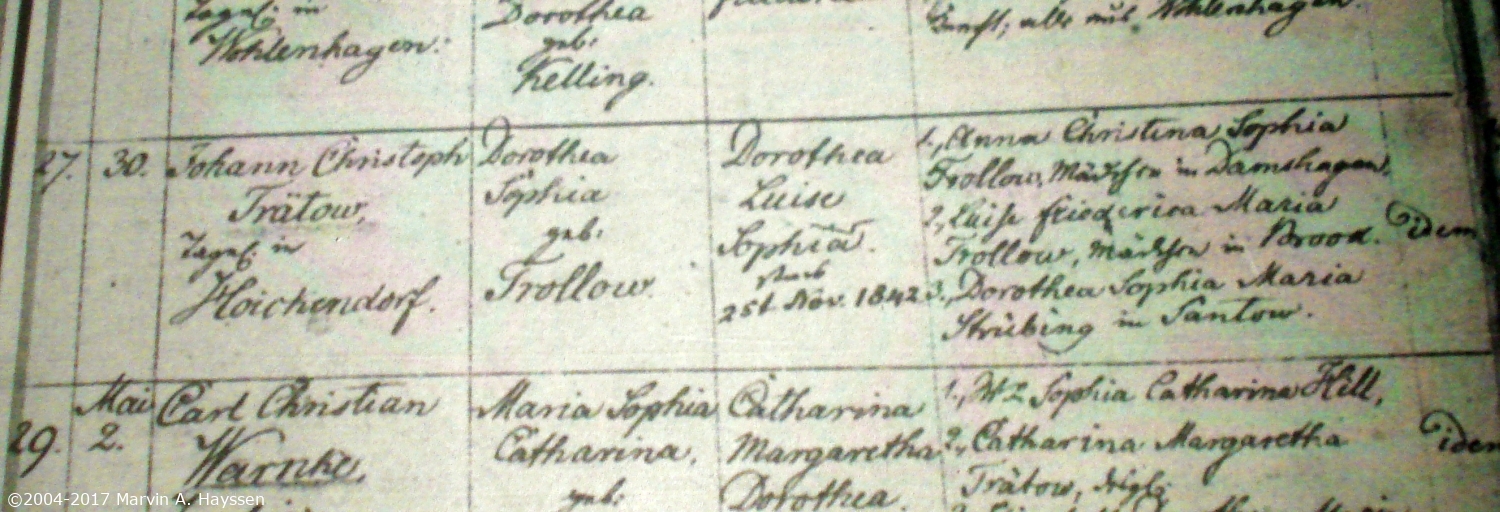 Tagel. in
Wohlenhagen.
Dorothea
geb:
Kelling.
Zunft; alle aus Wohlenhagen.
27.
30.
Johann Christoph
Trätow,
Tagel. in
Hoichendorf.
Dorothea
Sophia
geb:
Trollow.
Dorothea
Luise
Sophia.
starb
25t Nov. 1842
1., Anna Christina Sophia
Trollow, Mädchen in Damshagen,
2., Luise Friederica Maria
Trollow, Mädchen in Brook.
3., Dorothea Sophia Maria
Strübing in Santow.
idem
29.
Mai
2.
Carl Christian
Warnke,
Maria Sophia
Catharina,
geb:
Catharina
Margaretha
Dorothea.
1., Sophia Catharina Hill,
2., Catharina Margaretha
Trätow,
idem
©2004-2017 Marvin A. Hayssen